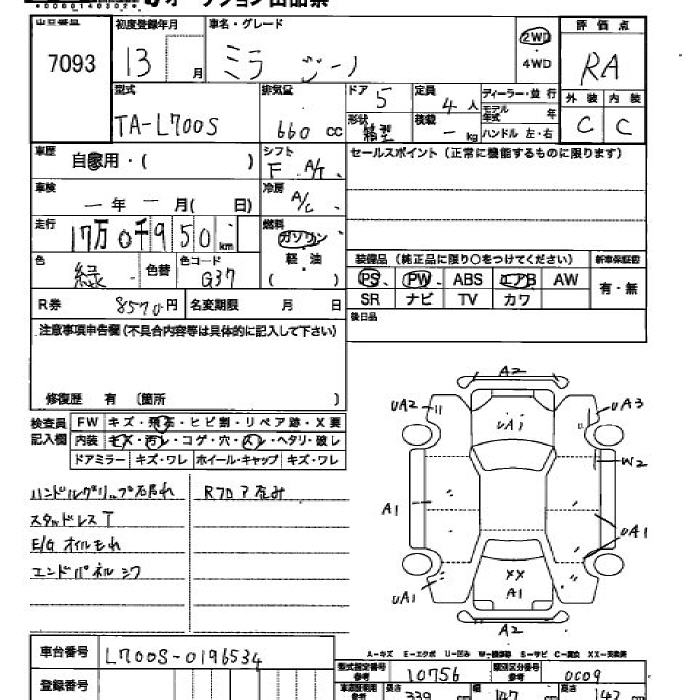 オークション出品票
出品番号 7093
初度登録年月 13 月
車名・グレード ミラ ジーノ
2WD
4WD
評価点 RA
外装 内装
C C
型式 TA-L700S
排気量 660 cc
ドア 5
形状 箱型
定員 4 人
積載 - kg
ディーラー・並行
モデル年式 年
ハンドル 左・右
車歴 自家用・( )
シフト F A/T
セールスポイント (正常に機能するものに限ります)
車検 一 年 一 月( 日)
冷房 A/C
走行 17万0千950 km
燃料 ガソリン
軽・油
( )
色 緑 色替
色コード G37
装備品 (純正品に限り○をつけてください)
新車保証書
PS PW ABS エアB AW
有・無
SR ナビ TV カワ
R券 8570円
名変期限 月 日
後日品
注意事項申告欄 (不具合内容等は具体的に記入して下さい)
修復歴 有 〔箇所 〕
検査員記入欄
FW キズ・飛石・ヒビ割・リペア跡・X要
内装 キズ・汚レ・コゲ・穴・スレ・ヘタリ・破レ
ドアミラー キズ・ワレ ホイール・キャップ キズ・ワレ
ハンドルグリップ汚れ
Rフロア歪み
スタッドレスT
E/G オイルもれ
エンドパネルシワ
A2
UA2
UA3
UA1
W2
A1
UA1
XX
A1
UA1
A2
A-キズ E-エクボ U-凹み W-補修跡 S-サビ C-腐食 XX-交換済
車台番号 L700S-0196534
型式指定番号 参考 10756
類別区分番号 参考 0009
登録番号
車検証車用 参考
長さ 339 cm
幅 147 cm
高さ 147